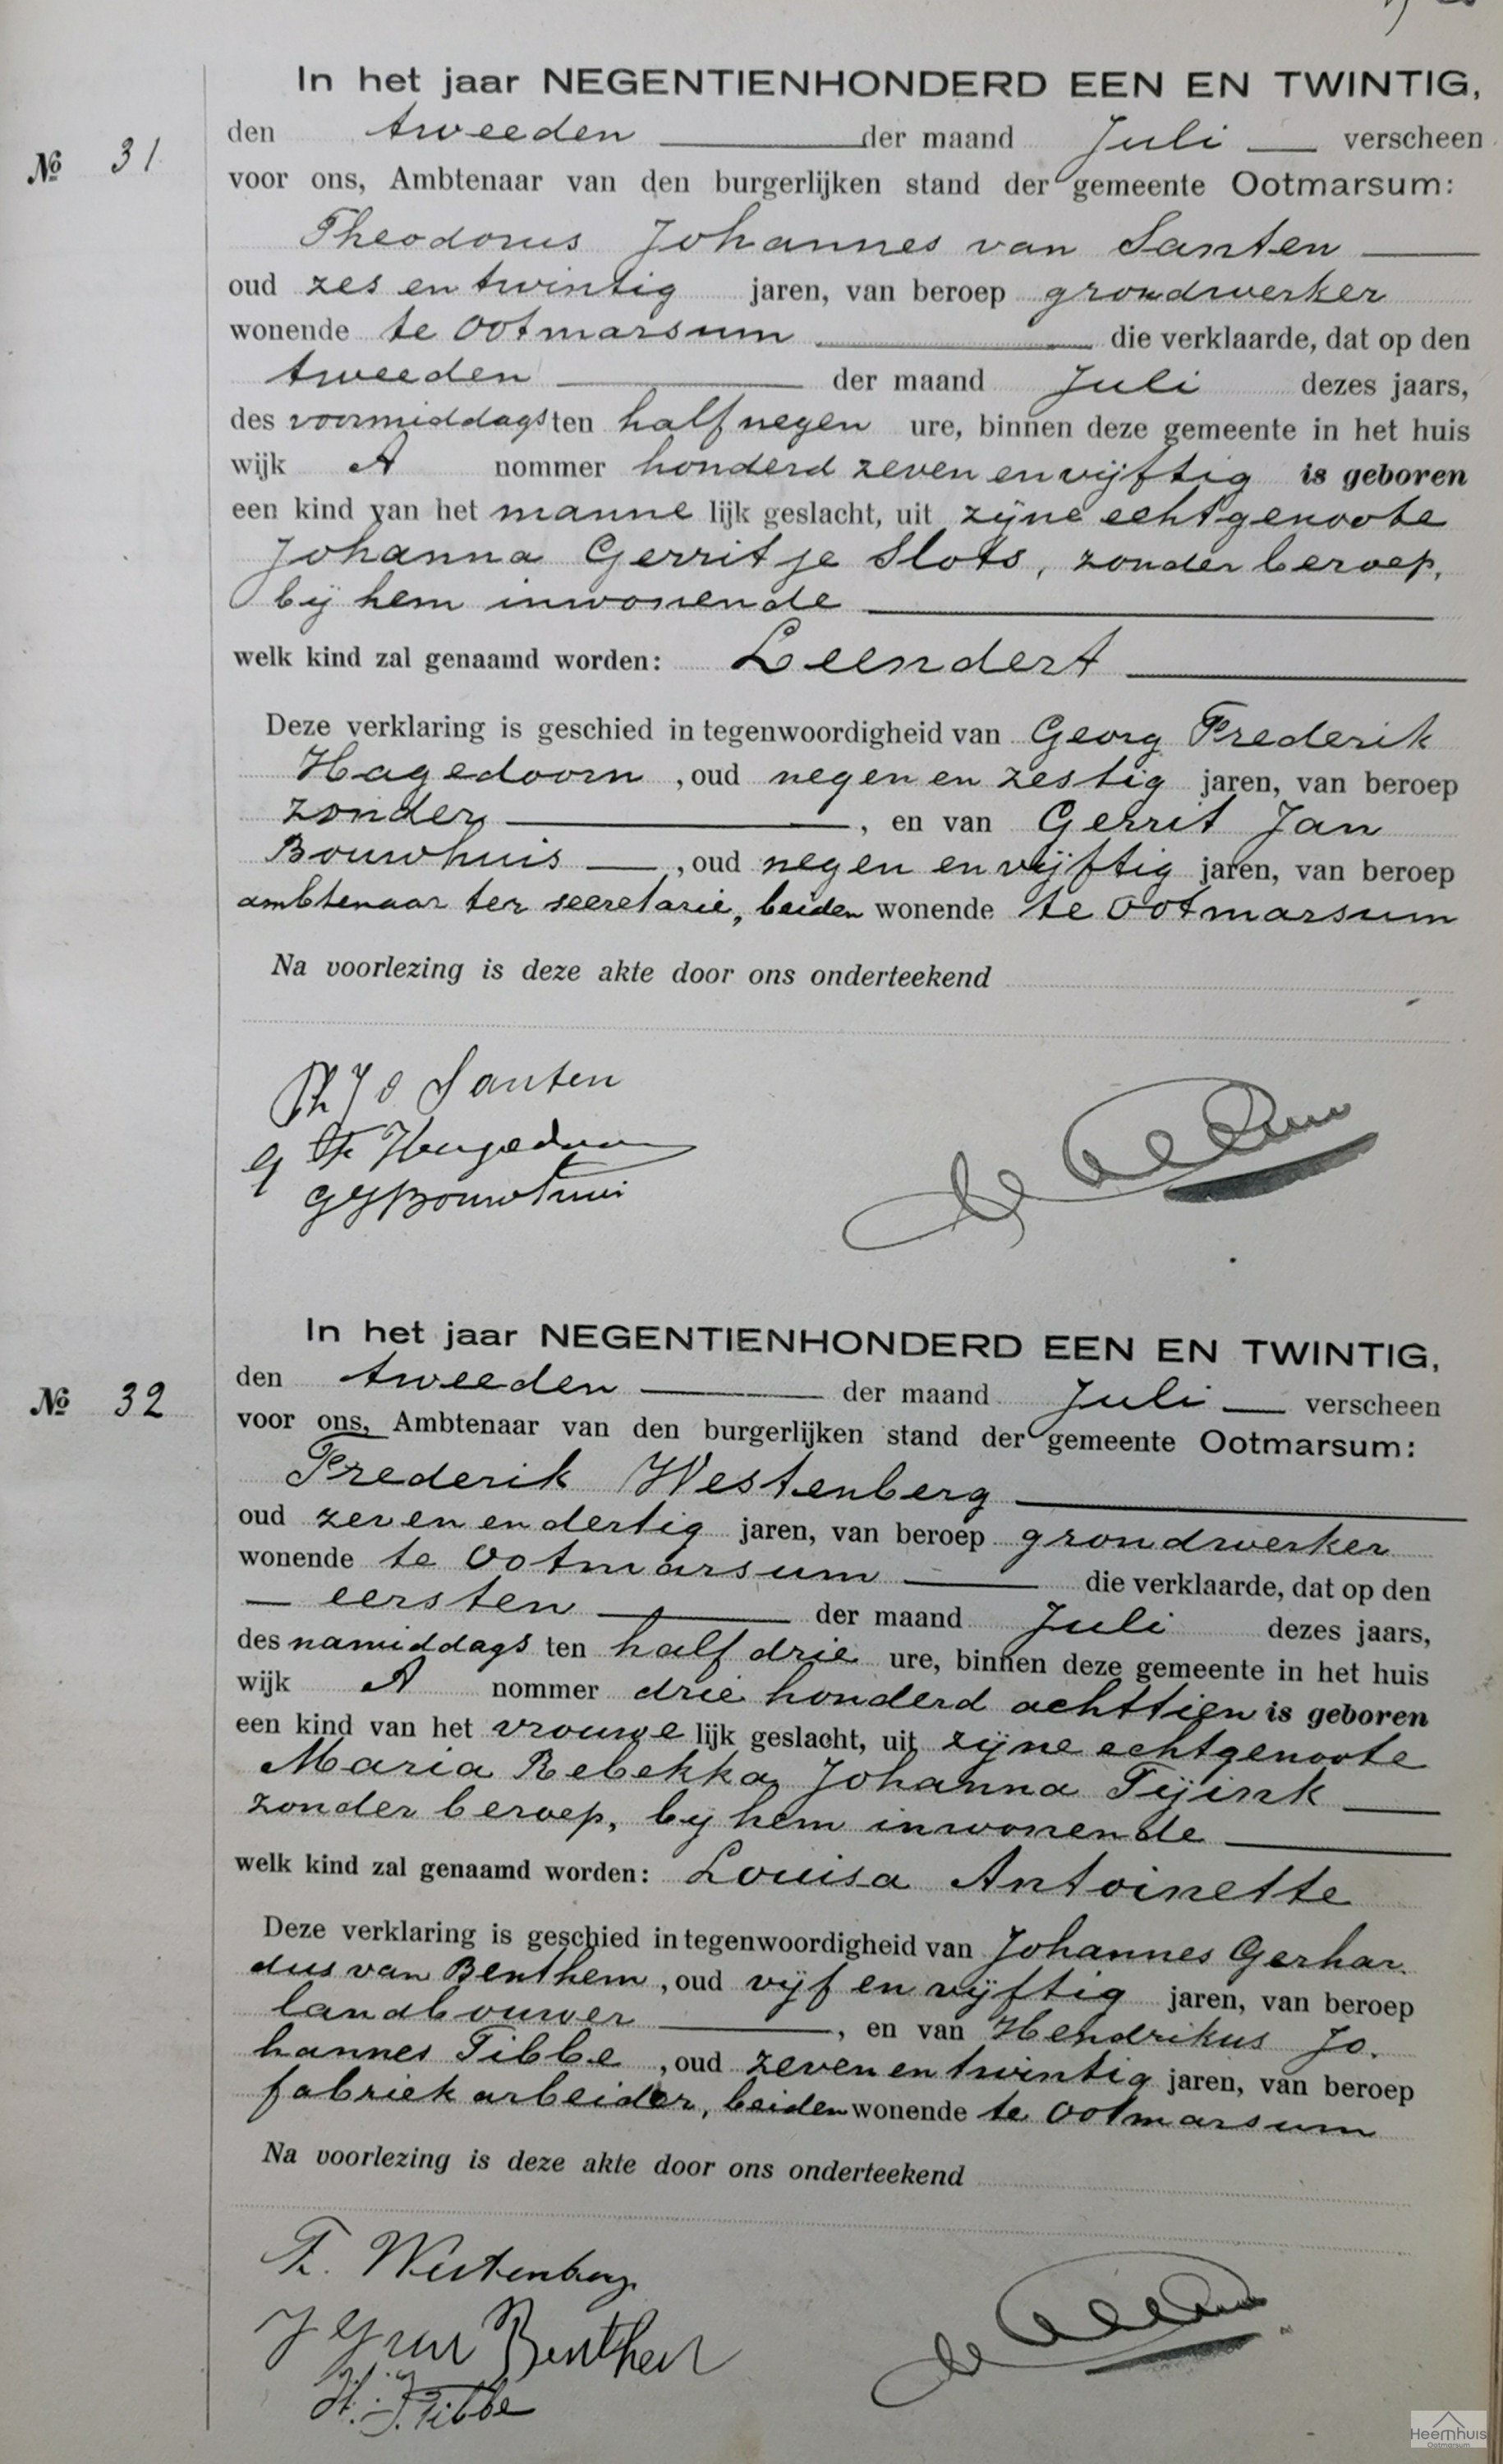 In het jaar NEGENTIENHONDERD EEN EN TWINTIG,
den tweeden der maand Juli verscheen
№ 31
voor ons, Ambtenaar van den burgerlijken stand der gemeente Ootmarsum:
Theodorus Johannes van Santen
oud zes en twintig jaren, van beroep grondwerker
wonende te Ootmarsum die verklaarde, dat op den
tweeden der maand Juli dezes jaars,
des voormiddags ten half negen ure, binnen deze gemeente in het huis
wijk A nommer honderd zeven en vijftig is geboren
een kind van het manne lijk geslacht, uit zijne echtgenoote
Johanna Gerritje Slots, zonder beroep,
bij hem inwonende
welk kind zal genaamd worden: Leendert
Deze verklaring is geschied in tegenwoordigheid van Georg Frederik
Hagedoorn, oud negen en zestig jaren, van beroep
zonder, en van Gerrit Jan
Bouwhuis, oud negen en vijftig jaren, van beroep
ambtenaar ter secretarie, beiden wonende te Ootmarsum
Na voorlezing is deze akte door ons onderteekend
Th J v Santen
G Fr Hagedoorn
GJ Bouwhuis
In het jaar NEGENTIENHONDERD EEN EN TWINTIG,
den tweeden der maand Juli verscheen
№ 32
voor ons, Ambtenaar van den burgerlijken stand der gemeente Ootmarsum:
Frederik Westenberg
oud zeven en dertig jaren, van beroep grondwerker
wonende te Ootmarsum die verklaarde, dat op den
eersten der maand Juli dezes jaars,
des namiddags ten half drie ure, binnen deze gemeente in het huis
wijk A nommer drie honderd achttien is geboren
een kind van het vrouwe lijk geslacht, uit zijne echtgenoote
Maria Rebekka Johanna Tijink
zonder beroep, bij hem inwonende
welk kind zal genaamd worden: Louisa Antoinette
Deze verklaring is geschied in tegenwoordigheid van Johannes Gerhar-
dus van Benthem, oud vijf en vijftig jaren, van beroep
landbouwer, en van Hendrikus Jo-
hannes Tibbe, oud zeven en twintig jaren, van beroep
fabriekarbeider, beiden wonende te Ootmarsum
Na voorlezing is deze akte door ons onderteekend
F. Westenberg
J G van Benthem
H. J. Tibbe
Heemhuis
Ootmarsum